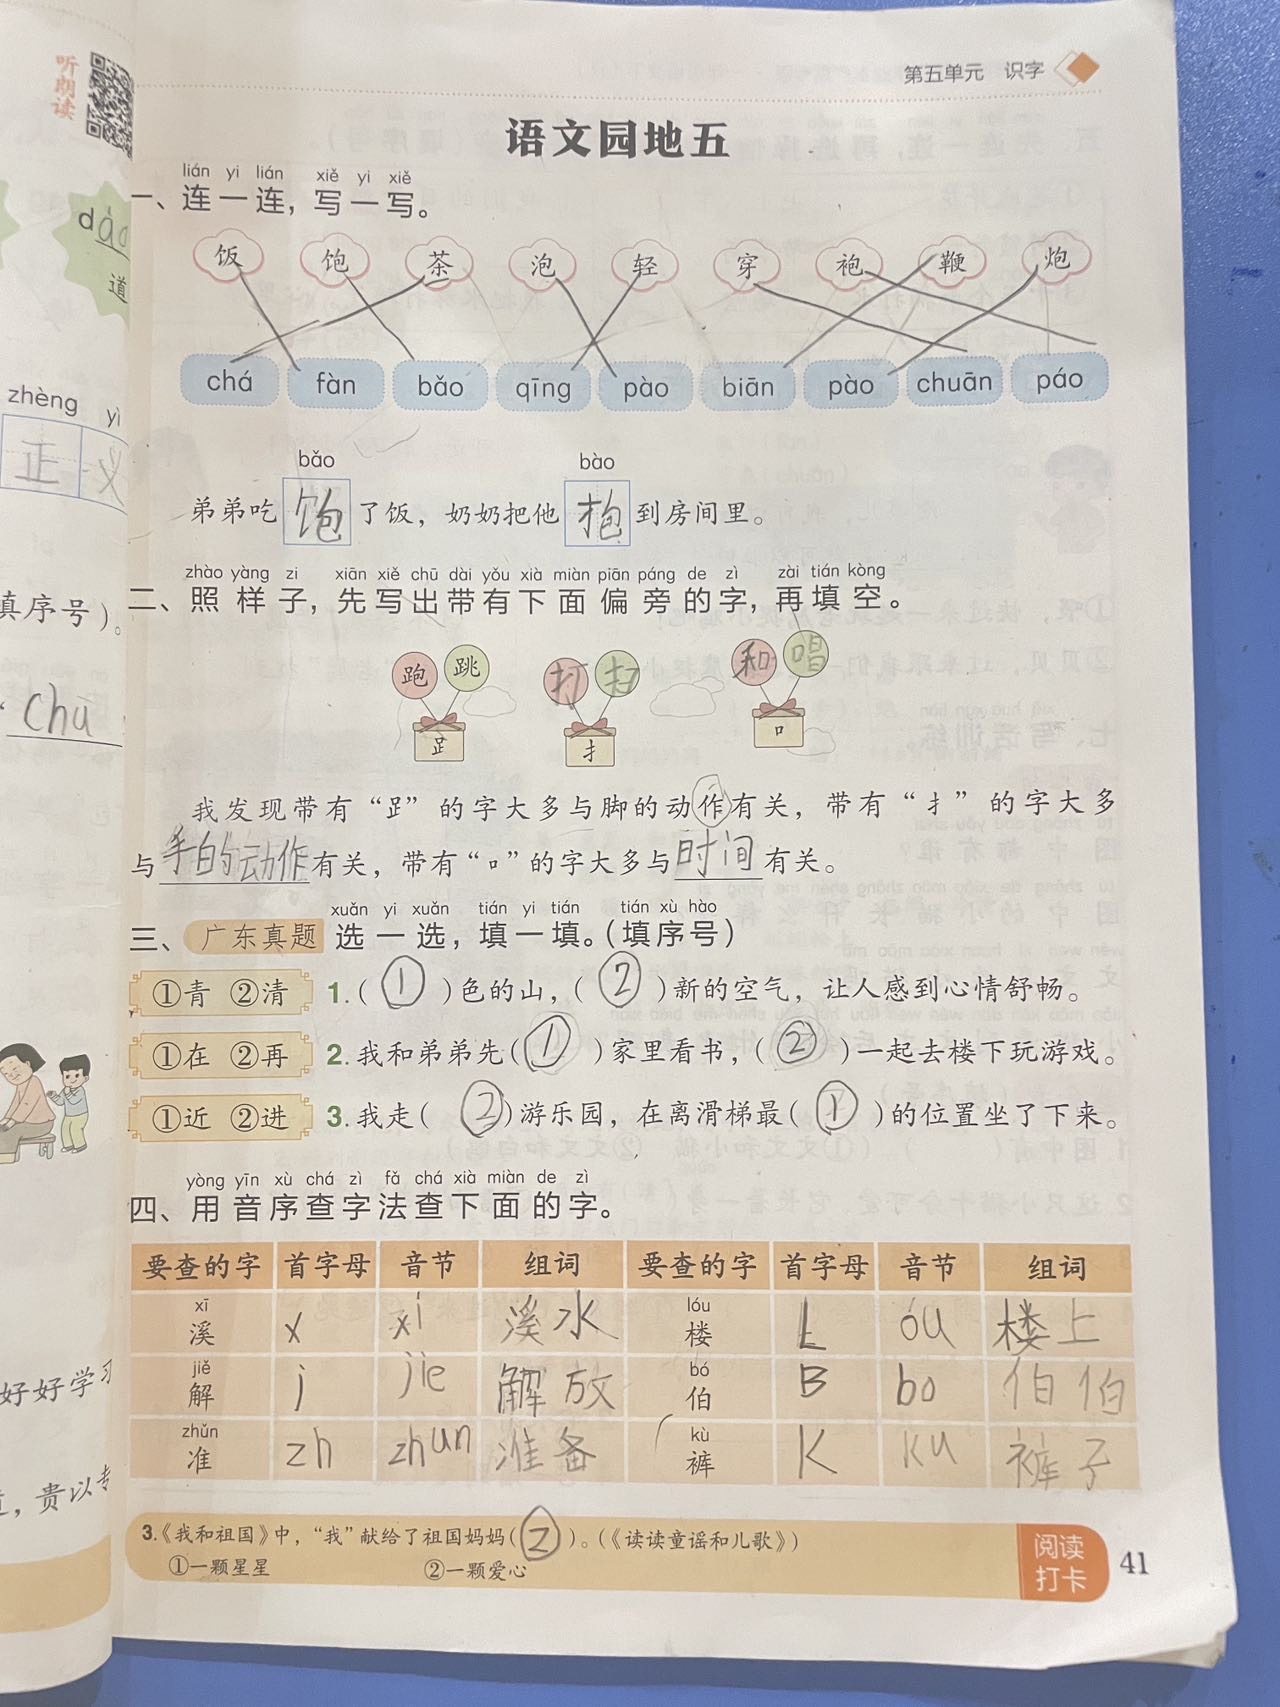 听朗读
第五单元 识字
语文园地五
lián yi lián xiě yi xiě
一、连一连，写一写。
饭 饱 茶 泡 轻 穿 袍 鞭 炮
chá fàn bǎo qīng pào biān pào chuān páo
bǎo bào
弟弟吃饱了饭，奶奶把他抱到房间里。
zhào yàng zi xiān xiě chū dài yǒu xià miàn piān páng de zì zài tián kòng
二、照样子，先写出带有下面偏旁的字，再填空。
跑 跳 打 扛 和 唱
⻊ 扌 口
我发现带有“⻊”的字大多与脚的动作有关，带有“扌”的字大多
与手的动作有关，带有“口”的字大多与时间有关。
xuǎn yi xuǎn tián yi tián tián xù hào
三、广东真题 选一选，填一填。（填序号）
①青 ②清 1.（①）色的山，（②）新的空气，让人感到心情舒畅。
①在 ②再 2.我和弟弟先（①）家里看书，（②）一起去楼下玩游戏。
①近 ②进 3.我走（②）游乐园，在离滑梯最（①）的位置坐了下来。
yòng yīn xù chá zì fǎ chá xià miàn de zì
四、用音序查字法查下面的字。
要查的字 首字母 音节 组词 要查的字 首字母 音节 组词
xī lóu
溪 x xi 溪水 楼 L óu 楼上
jiě bó
解 j jie 解放 伯 B bo 伯伯
zhǔn kù
准 zh zhun 准备 裤 K ku 裤子
3.《我和祖国》中，“我”献给了祖国妈妈（②）。（《读读童谣和儿歌》）
①一颗星星 ②一颗爱心
阅读
打卡
41
dào
道
zhèng yì
正义
填序号）。
chu
好好学习
贵以专